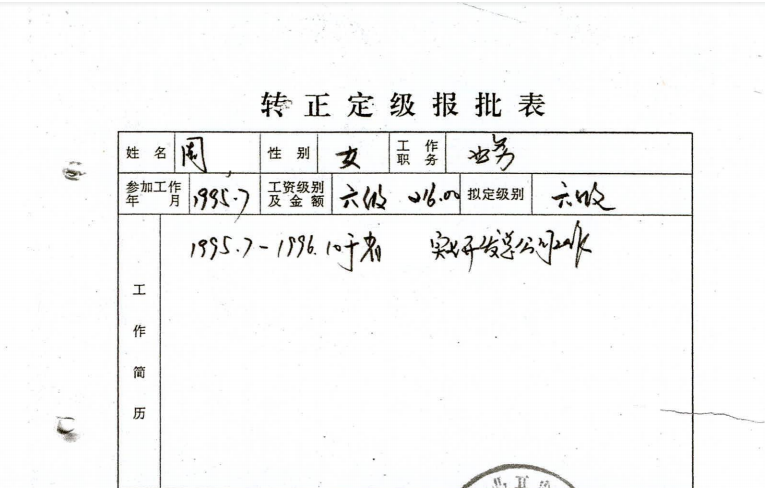 转正定级报批表
姓名 周 性别 女 工作职务 业务
参加工作年月 1995.7 工资级别及金额 六级 216.00 拟定级别 六级
工作简历
1995.7-1996.10于 实业开发总公司工作